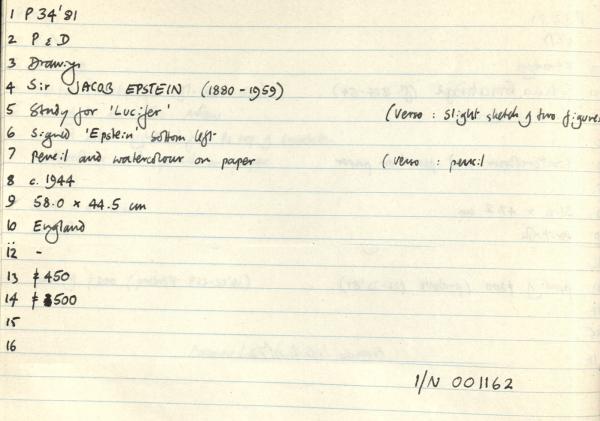 1 P 34'81
2 P & D
3 Drawings
4 Sir JACOB EPSTEIN (1880-1959)
5 Study for 'Lucifer' (Verso : Slight sketch of two figures
6 Signed 'Epstein' bottom left
7 Pencil and watercolour on paper (verso : pencil
8 c. 1944
9 58.0 x 44.5 cm
10 England
11
12 -
13 £450
14 £500
15
16
I/N 001162